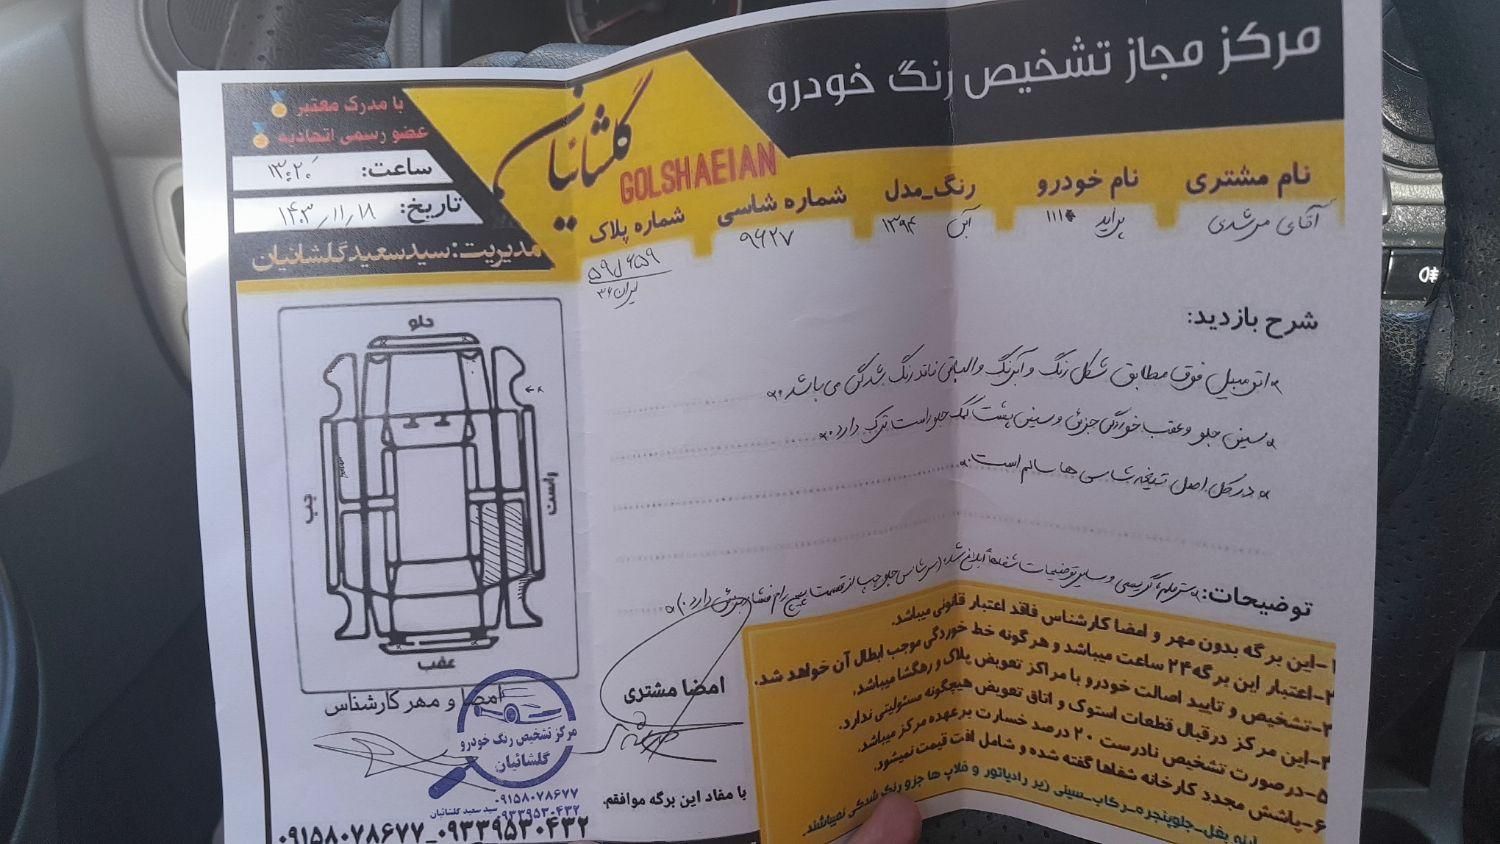 مرکز مجاز تشخیص رنگ خودرو
با مدرک معتبر
عضو رسمی اتحادیه
گلشائیان
GOLSHAEIAN
ساعت: ۱۳:۲۰
تاریخ: ۱۴۰۳/۱۱/۱۸
مدیریت: سیدسعیدگلشائیان
نام مشتری
آقای مرشدی
نام خودرو
پراید ۱۱۱
رنگ_مدل
۱۳۹۴
شماره شاسی
۹۶۲۷
شماره پلاک
ایران ۳۶
شرح بازدید:
اتومبیل فوق مطابق شکل رنگ و آبرنگ و الباقی فاقد رنگ شدگی می باشد.
سینی جلو و عقب خوردگی جزئی و سینی پشت کمک جلو راست ترک دارد.
در کل اصل تیغه شاسی ها سالم است.
توضیحات:
جلو
چپ
راست
عقب
امضا و مهر کارشناس
مرکز تشخیص رنگ خودرو
گلشائیان
۰۹۱۵۸۰۷۸۶۷۷
۰۹۳۳۹۵۳۰۴۳۲
سید سعید گلشائیان
۰۹۱۵۸۰۷۸۶۷۷_۰۹۳۳۹۵۳۰۴۳۲
امضا مشتری
با مفاد این برگه موافقم.
۱-این برگه بدون مهر و امضا کارشناس فاقد اعتبار قانونی میباشد.
۲-اعتبار این برگه ۲۴ ساعت میباشد و هرگونه خط خوردگی موجب ابطال آن خواهد شد.
۳-تشخیص و تایید اصالت خودرو با مراکز تعویض پلاک و رهگشا میباشد.
۴-این مرکز درقبال قطعات استوک و اتاق تعویض هیچگونه مسئولیتی ندارد.
۵-درصورت تشخیص نادرست ۲۰ درصد خسارت برعهده مرکز میباشد.
۶-پاشش مجدد کارخانه شفاها گفته شده و شامل افت قیمت نمیشود.
آینه بغل_جلوپنجره_رکاب_سینی زیر رادیاتور و فلاپ ها جزو رنگ شدگی نمیباشند.